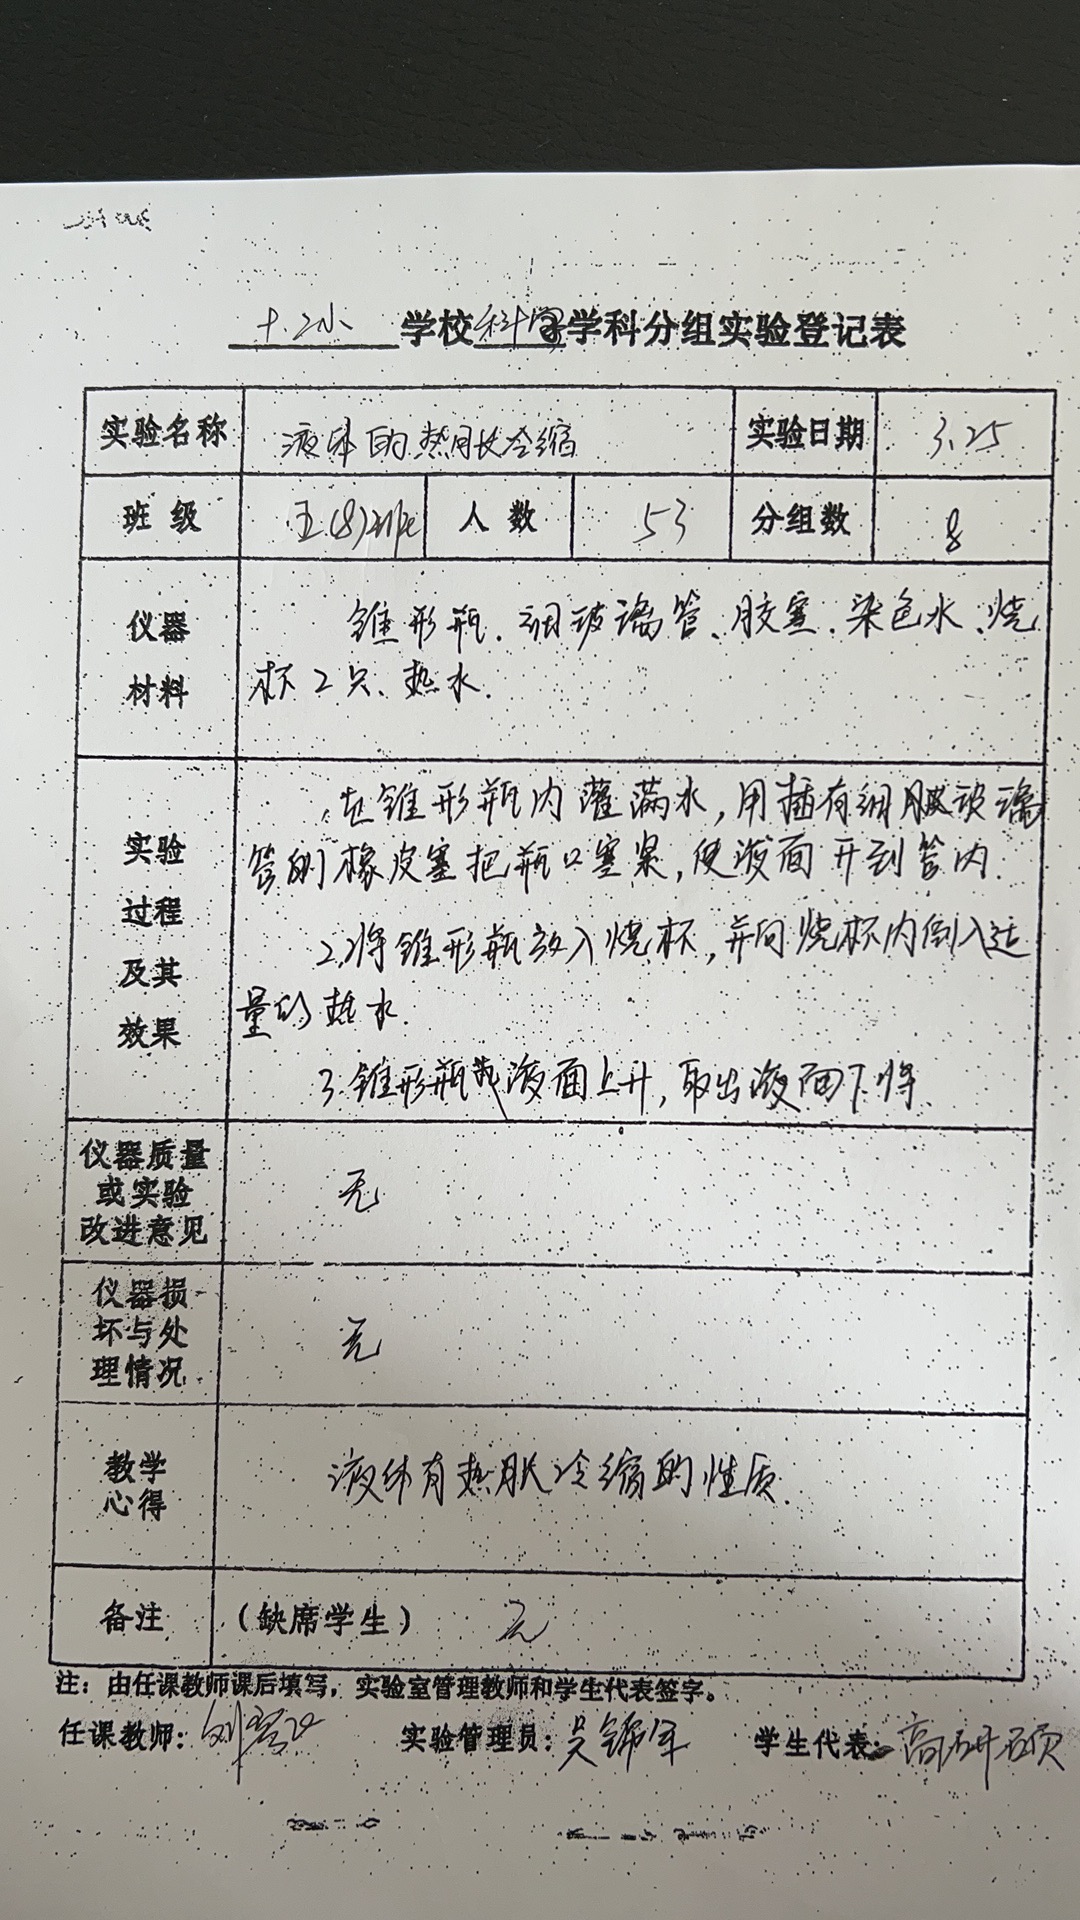 十.2小 学校科学学科分组实验登记表
实验名称 液体的热胀冷缩 实验日期 3.25
班级 五(8) 人数 53 分组数 8
仪器 锥形瓶、细玻璃管、胶塞、染色水、烧
材料 杯2只、热水.
在锥形瓶内灌满水,用插有细玻璃
管的橡皮塞把瓶口塞紧,使液面升到管内.
2.将锥形瓶放入烧杯,并向烧杯内倒入适
量的热水.
3.锥形瓶液面上升,取出液面下将
实验
过程
及其
效果
仪器质量
或实验
改进意见
无
仪器损
坏与处
理情况
无
教学
心得
液体有热胀冷缩的性质.
备注 (缺席学生) 无
注:由任课教师课后填写,实验室管理教师和学生代表签字。
任课教师: 实验管理员:吴锦军 学生代表:高研硕